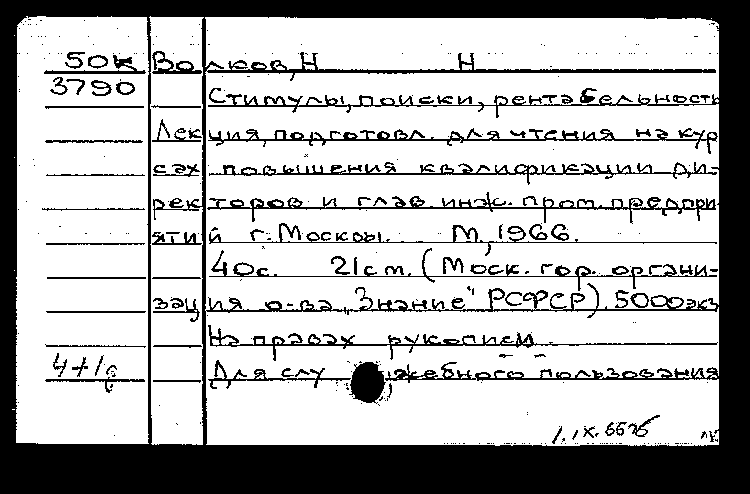 50К Волков, Н Н
3790
Стимулы, поиски, рентабельность
Лекция, подготовл. для чтения на кур
сах повышения квалификации ди-
ректоров и глав. инж. пром. предпри
ятий г. Москвы. М., 1966.
40с. 21см. (Моск. гор. органи-
зация о-ва „Знание" РСФСР). 5000экз
На правах рукописи
4+1в Для служебного пользования
1.IX.66